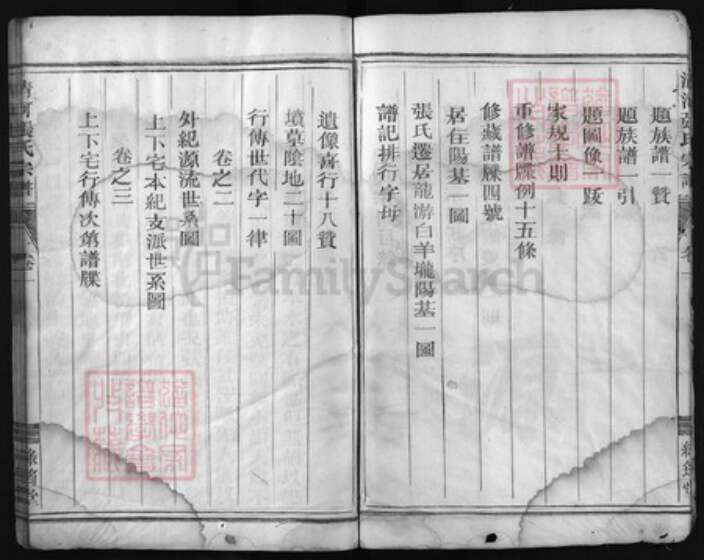 題族譜一贊
題族譜一引
題圖像一跋
家規十則
重修譜牒例十五條
修藏譜牒四號
居住陽基一圖
張氏遷居龍游白羊壠陽基一圖
譜記排行字母
遺像壽行十八贊
墳墓陰地二十圖
行傳世代字一律
卷之二
外紀源流世系圖
上下宅本紀支派世系圖
卷之三
上下宅行傳次第譜牒
清河張氏宗譜
卷一
FamilySearch